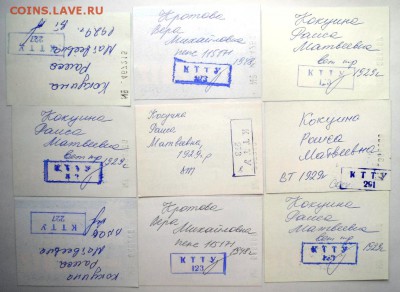 COINS.LAVE.RU
Кокуина
Раиса
Матвеевна
1929г.
КТТУ
227
Кротова
Вера
Михайловна
пенс 11517
1948г.
КТТУ
Кокуина
Раиса
Матвеевна
Вет тр
1929г.
КТТУ
Кокуина
Раиса
Матвеевна
Вет тр 1929г.
КТТУ
Раиса
Матвеевна
1929г.р
вт
КТТУ
Кокуина
Раиса
Матвеевна
ВТ 1929г.
КТТУ
291
Кокуина
Раиса
Матвеевна
КТТУ
227
Кротова
Вера
Михайловна
пенс 11517
1948г.
КТТУ
Кокуина
Раиса
Матвеевна
Вет тр
1929г.
КТТУ